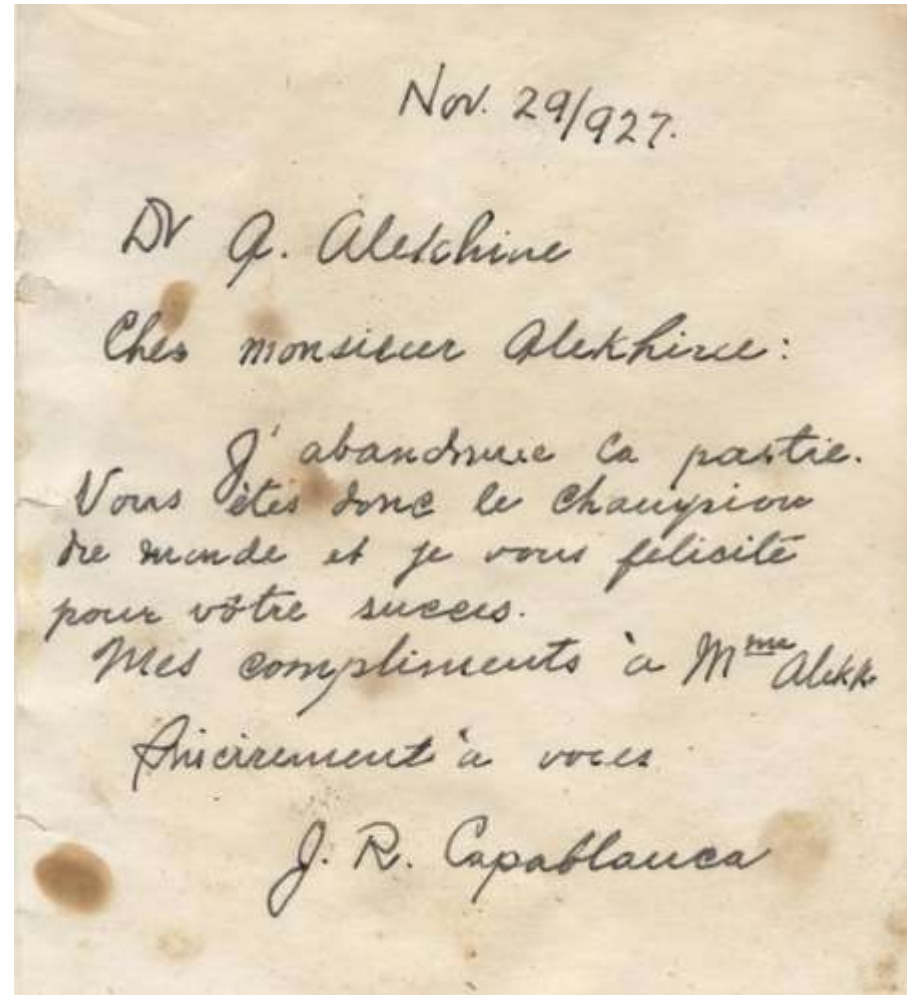 Nov. 29/927.
Dr A. Alekhine
Cher monsieur Alekhine:
J'abandonne la partie.
Vous êtes donc le champion
du monde et je vous félicité
pour vôtre succes.
Mes compliments à Mme Alekh
Sincirement à vous
J. R. Capablanca